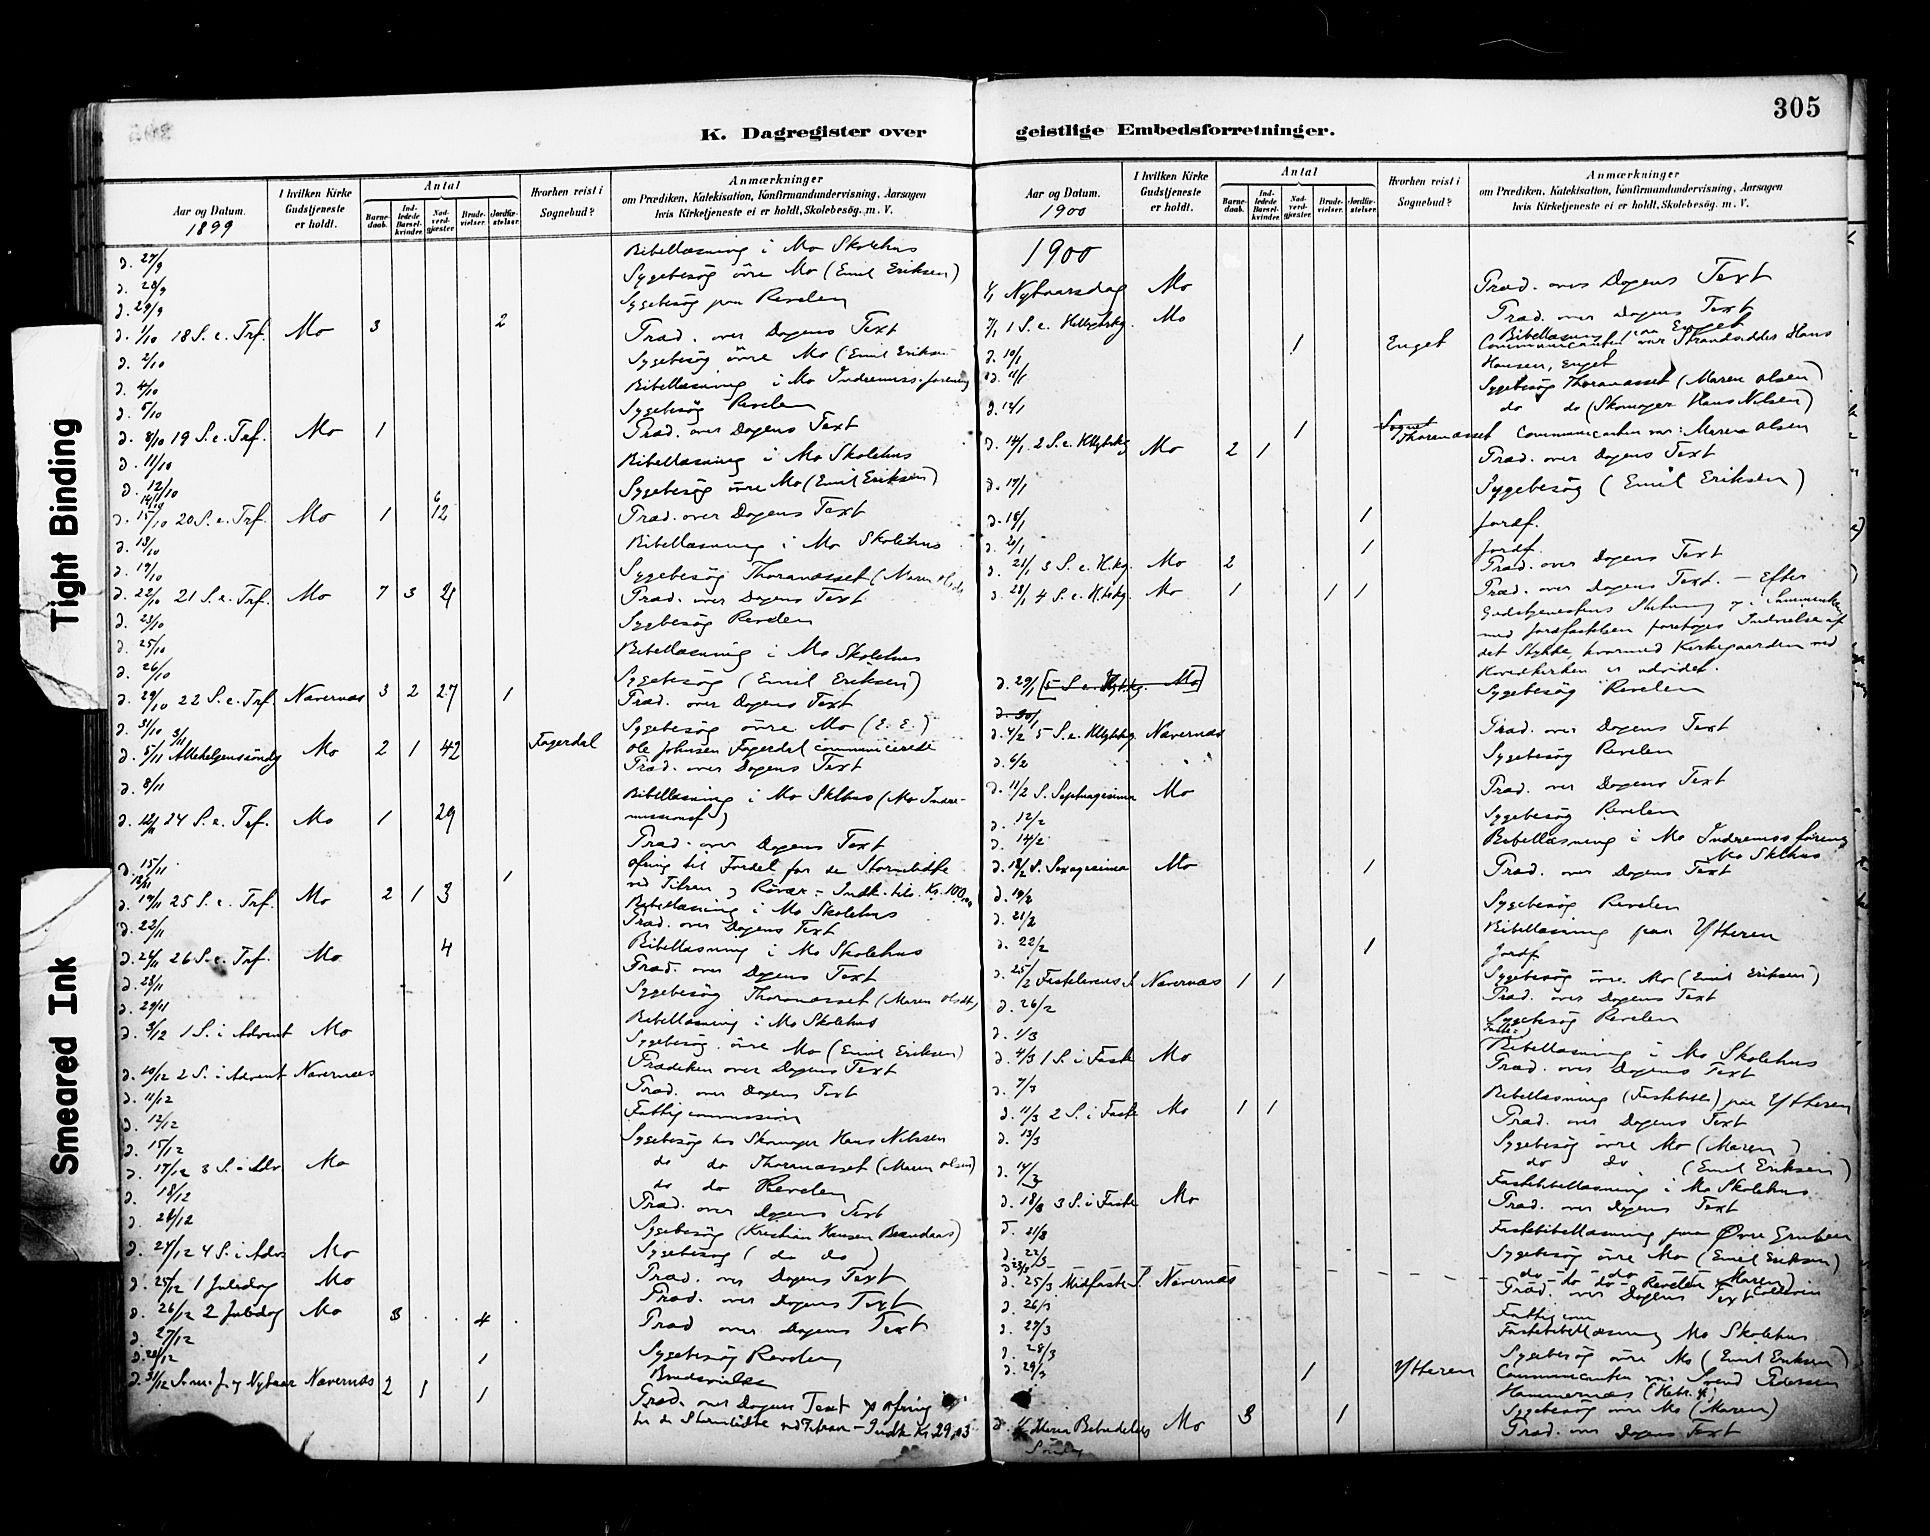 305
K. Dagregister over geistlige Embedsforretninger.
Tight Binding
Smeared Ink
Aar og Datum.
1899
I hvilken Kirke Gudstjeneste er holdt.
Antal
Barnedaab.
Indledede Barselkvinder.
Nadverdgjæster.
Brudevielser.
Jordfæstelser.
Hvorhen reist i Sognebud?
Anmærkninger
om Prædiken, Katekisation, Konfirmandundervisning, Aarsagen
hvis Kirketjeneste ei er holdt, Skolebesøg, m. V.
d. 27/9 Bibellæsning i Mo Skolehus
d. 28/9 Sygebesøg övre Mo (Emil Eriksen)
d. 29/9 Sygebesøg paa Revelen
d. 1/10 18 S. e. Trf. Mo 3 2 Præd. over Dagens Text
d. 2/10 Sygebesøg övre Mo (Emil Eriksen
d. 4/10 Bibellæsning i Mo Indremiss.forening
d. 5/10 Sygebesøg Revelen
d. 8/10 19 S. e. Trf. Mo 1 Præd. over Dagens Text
d. 11/10 Bibellæsning i Mo Skolehus
d. 12/10 Sygebesøg övre Mo (Emil Eriksen)
14/10 6
d. 15/10 20 S. e. Trf. Mo 1 12 Præd. over Dagens Text
d. 18/10 Bibellæsning i Mo Skolehus
d. 19/10 Sygebesøg Thoranæsset (Maren
d. 22/10 21 S. e. Trf. Mo 7 3 21 Præd. over Dagens Text
d. 23/10 Sygebesøg Revelen
d. 25/10 Bibellæsning i Mo Skolehus
d. 26/10 Sygebesøg (Emil Eriksen)
d. 29/10 22 S. e. Trf. Nævernæs 3 2 27 1 Præd. over Dagens Text
d. 31/10 Sygebesøg övre Mo (E. E.)
3/11 Fagerdal Ole Johnsen Fagerdal communicerede
d. 5/11 Allehelgenssöndg Mo 2 1 42 Præd. over Dagens Text
d. 8/11 Bibellæsning i Mo Sklhus (Mo Indre-
missionsf.)
d. 12/11 24 S. e. Trf. Mo 1 29 Præd. over Dagens Text
ofring til Fordel for de Stormlidte
ved Titran og Rövær - Indk. tils. Kr. 100,00
d. 15/11 Bibellæsning i Mo Skolehus
18/11 1
d. 19/11 25 S. e. Trf. Mo 2 1 3 Præd. over Dagens Text
d. 22/11 Bibellæsning i Mo Skolehus
d. 26/11 26 S. e. Trf. Mo 4 Præd. over Dagens Text
d. 28/11 Sygebesøg Thoranæsset (Maren Olsdt.)
d. 29/11 Bibellæsning i Mo Skolehus
Sygebesøg övre Mo (Emil Eriksen)
d. 3/12 1 S. i Advent Mo Prædiken over Dagens Text
d. 10/12 2 S. i Advent Nævernæs Præd. over Dagens Text
d. 11/12 Fattigcommission
d. 12/12 Sygebesøg hos Skomager Hans Nilssen
do do Thoranæsset (Maren Olsen)
d. 15/12 do do Revelen
d. 17/12 3 S. i Adv. Mo Præd. over Dagens Text
d. 18/12 Sygebesøg (Kristian Hansen
d. 26/12 Sygebesøg (do do)
d. 24/12 4 S. i Adv. Mo Præd. over Dagens Text
d. 25/12 1 Juledag Mo Præd. over Dagens Text
d. 26/12 2 Juledag Mo 3 4 Præd over Dagens Text
d. 27/12 Sygebesøg Revelen
d. 28/12 1 Brudevielse
d. 31/12 S. m. J. og Nytaar Nævernæs 2 1 1 Præd. over Dagens Text og ofring
for de Stormlidte ved Titran - Indk. Kr 29,03
Aar og Datum.
1900
I hvilken Kirke Gudstjeneste er holdt.
Antal
Barnedaab.
Indledede Barselkvinder.
Nadverdgjæster.
Brudevielser.
Jordfæstelser.
Hvorhen reist i Sognebud?
Anmærkninger
om Prædiken, Katekisation, Konfirmandundervisning, Aarsagen
hvis Kirketjeneste ei er holdt, Skolebesøg, m. V.
1900
1/1 Nytaarsdag Mo Præd. over Dagens Text
7/1 1 S. e. Helligtrkg. Mo Præd. over Dagens Text
Bibellæsning paa Enget
d. 10/1 1 Enget Communicanten var Strandsidder Hans
Hansen, Enget
d. 11/1 Sygebesøg Thoranæsset (Maren Olsen)
d. 12/1 do do (Skomager Hans Nilsen)
1 Thoranæsset Communicanten var: Maren Olsen
d. 14/1 2 S. e. Hllgtrkg Mo 2 1 Præd. over Dagens Text
d. 17/1 Sygebesøg (Emil Eriksen)
d. 18/1 1 Jordf.
d. 20/1 1 Jordf.
d. 21/1 3 S. e. H.kg. Mo 2 Præd. over Dagens Text
d. 28/1 4 S. e. H.trkg. Mo 1 1 1 Præd. over Dagens Text. — Efter
Gudstjenestens Slutning og i Sammenhæng
med Jordfæstelsen foretoges Indvielse af
det Stykke, hvormed Kirkegaarden ved
Hovedkirken er udvidet.
d. 29/1 [5 S. e. Hllgtrkg. Mo] Sygebesøg Revelen
d. 30/1
d. 4/2 5 S. e. Hllgtrkg Nævernæs Præd. over Dagens Text
d. 6/2 Sygebesøg Revelen
d. 11/2 S. Septuagesima Mo Præd. over Dagens Text
d. 12/2 Sygebesøg Revelen
d. 14/2 Bibellæsning i Mo Indremissforening
Mo Sklhus
d. 18/2 S. Sexagesima Mo 1 Præd. over Dagens Text
d. 19/2 Sygebesøg Revelen
d. 21/2 Bibellæsning paa Ytteren
d. 22/2 1 Jordf.
Sygebesøg övre Mo (Emil Eriksen)
d. 25/2 Fastelavens S. Nævernæs 1 1 Præd. over Dagens Text
d. 26/2 Sygebesøg Revelen
Faste-
d. 1/3 Bibellæsning i Mo Skolehus
d. 4/3 1 S. i Faste Mo Præd. over Dagens Text
d. 7/3 Bibellæsning (Fastebibll) paa Ytteren
d. 11/3 2 S. i Faste Mo 1 1 Præd. over Dagens Text
d. 13/3 Sygebesøg övre Mo (Maren)
do do (Emil Eriksen)
d. 14/3 Fastebibellæsning i Mo Skolehus
d. 18/3 3 S. i Faste Mo Præd. over Dagens Text
d. 21/3 Fastebibellæsning paa Övre Gruben
d. 22/3 Sygebesøg övre Mo (Emil Eriksen)
d. 23/3 do do do Revelen (Maren)
d. 25/3 Midfaste S. Nævernæs Præd. over Dagens Text
d. 26/3 Fattigcom
d. 27/3 Fastebibellæsning Mo Skolehus
d. 28/3 Sygebesøg övre Mo (Emil Eriksen)
d. 29/3 1 Ytteren Communicanten var Svend Pedersen
Hammernæs
Sygebesøg övre Mo (Maren)
d. 1/4 Maria Bebudelses Mo 3 1 Præd. over Dagens Text
Söndag